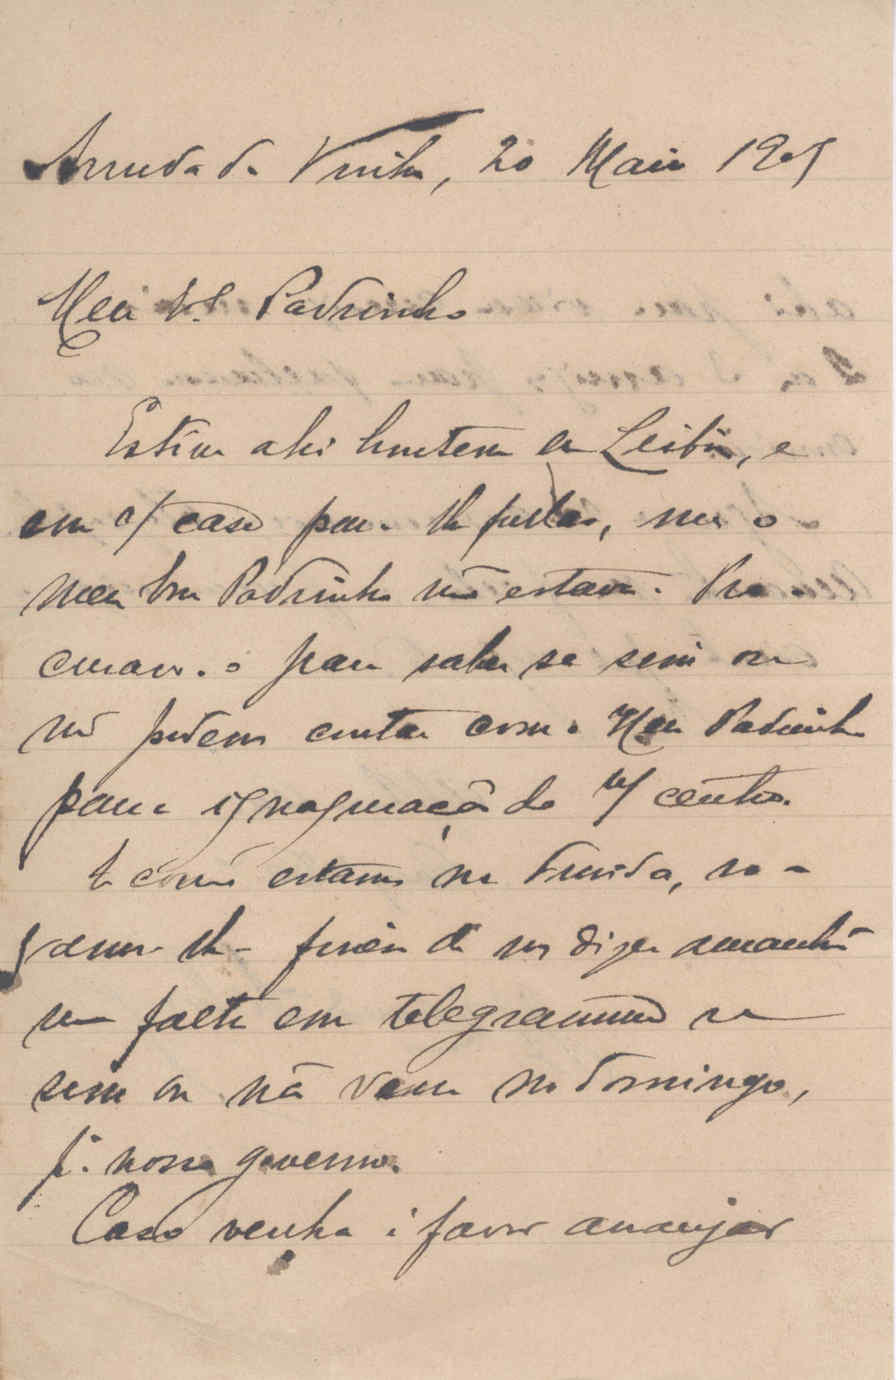 Arruda da Vinha, 20 Maio 190
Meu Padrinho
Estive ahi hontem em Lesbôa, e
em s/ casa para lhe fallar, mas o
meu bom Padrinho não estava. Pro-
curava-o para saber se sim ou
não podem contar com o Meu Padrinho
para ignaguração do n/ centro.
E como estamos na duvida, ro-
gamos-lhe fineza de nos dizer amanhã
sem falta em telegramma se
sim ou não vem no domingo,
p.ª nosso governo.
Caso venha é favor arranjar